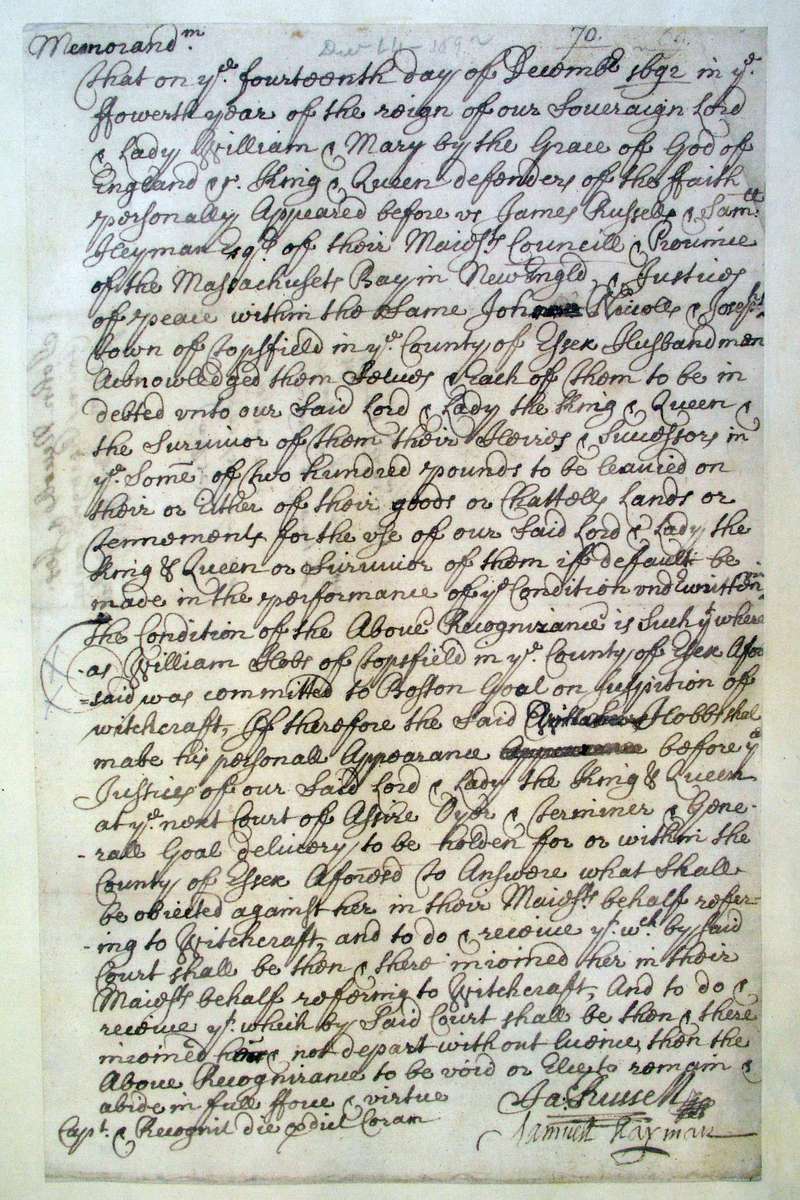 70.
Memorand^m.
that on y^e. fourteenth day of Decemb^r 1692 in y^e.
ffowerth year of the reign of our Soveraign Lord
& Lady William & Mary by the Grace of God of
England &c. King & Queen defenders of the ffaith
personally Appeared before vs James Russell & Sam^ll:
Heyman Esq^rs of their Maies^ts Councill & Province
of the Massachusets Bay in New Engl^d, & Justices
of peace within the Same John Nicols & Joseph
town of Topsfield in y^e County of Essex Husbandmen
Acknowledged them Selues & Each of them to be in
debted vnto our Said Lord & Lady the King & Queen &
the Surviuor of them their Heires & Successors in
y^e Some of two hundred pounds to be leauied on
their or Either of their goods or Chattells Lands or
tennements for the vse of our Said Lord & Lady the
King & Queen or Suruiuor of them if default be
made in the performance of y^e Condition vnderwritten
the Condition of the Above Recognizance is Such y^t where
-as William Hobs of Topsfield in y^e County of Essex Afor
=said was committed to Boston Goal on suspition of
witchcraft, If therefore the Said Hobbs shal
make his personall Appearance before y^e
Justices of our Said Lord & Lady the King & Queen
at y^e next Court of Assize Oyer & Terminer & Gene-
-rall Goal delivery to be holden for or within the
County of Essex Afores^d to Answere what shall
be obiected against her in their Maies^ts behalf refer-
-ing to Witchcraft, and to do & receiue y^t w^ch by said
Court shall be then & there inioined her in their
Maies^ts behalf refering to Witchcraft, And to do &
receiue y^t which by Said Court shall be then & there
inioined & not depart without licence, then the
Above Recognizance to be void or Else to remain &
abide in full fforce & virtue
Capt. & Recognit die predict Coram
Ja: Russell
Samuell Hayman